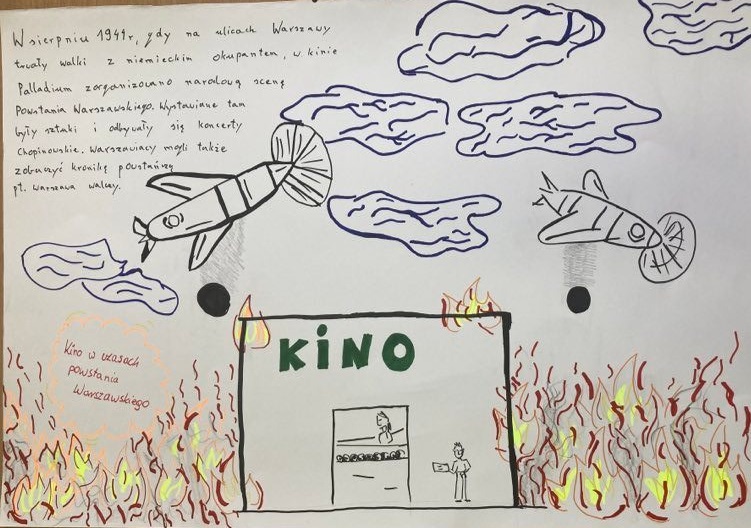 W sierpniu 1944r, gdy na ulicach Warszawy
trwały walki z niemieckim okupantem, w kinie
Palladium zorganizowano narodową scenę
Powstania Warszawskiego. Wystawiane tam
były sztuki i odbywały się koncerty
Chopinowskie. Warszawiacy mogli także
zobaczyć kronikę powstańczą
pt. Warszawa walczy.
KiNO
Kino w czasach
powstania
Warszawskiego